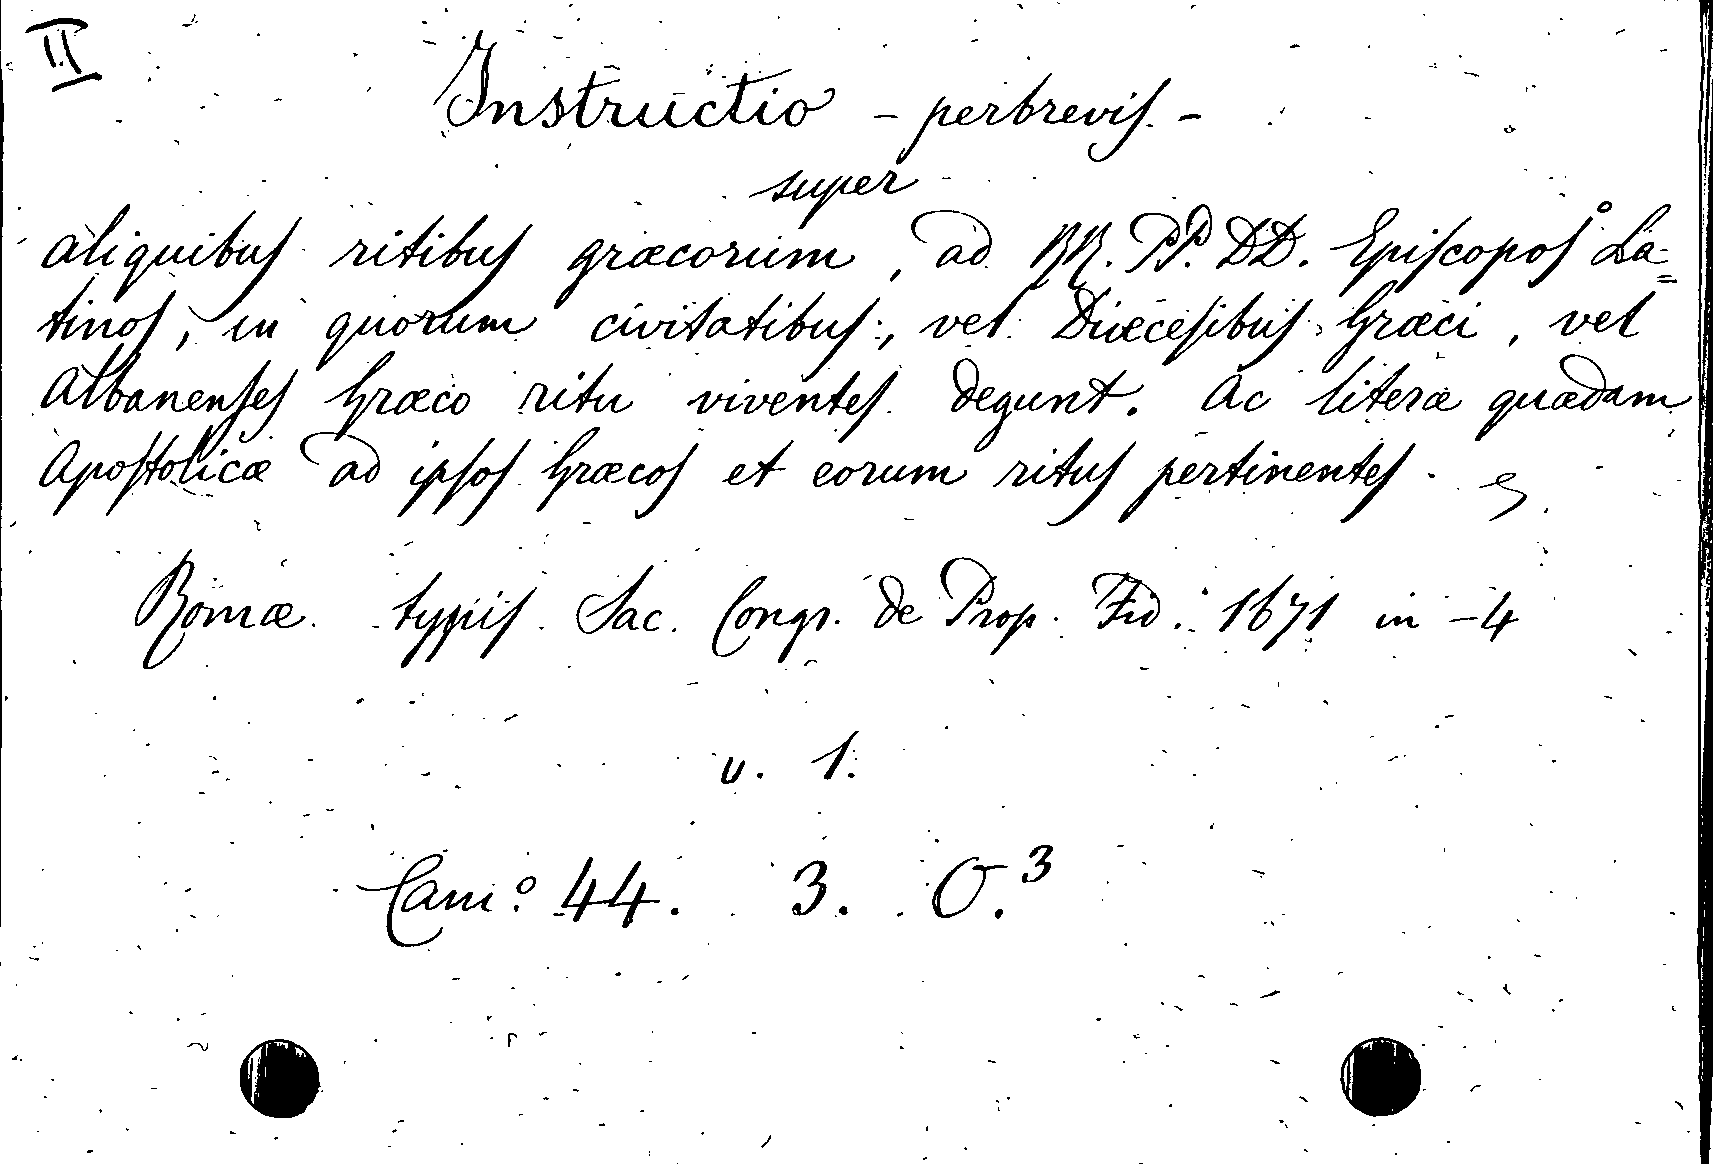 II
Instructio - perbrevis. -
super
aliquibus ritibus græcorum, ad RR. PP. DD. Episcopos La=
tinos, in quorum civitatibus, vel Diœcesibus Græci, vel
Albanenses Græco ritu viventes degunt. Ac literæ quædam
Apostolicæ ad ipsos Græcos et eorum ritus pertinentes.
Romæ. typis. Sac. Congr. de Prop. Fid. 1671 in -4
v. 1.
Cam.º 44. 3. O.³